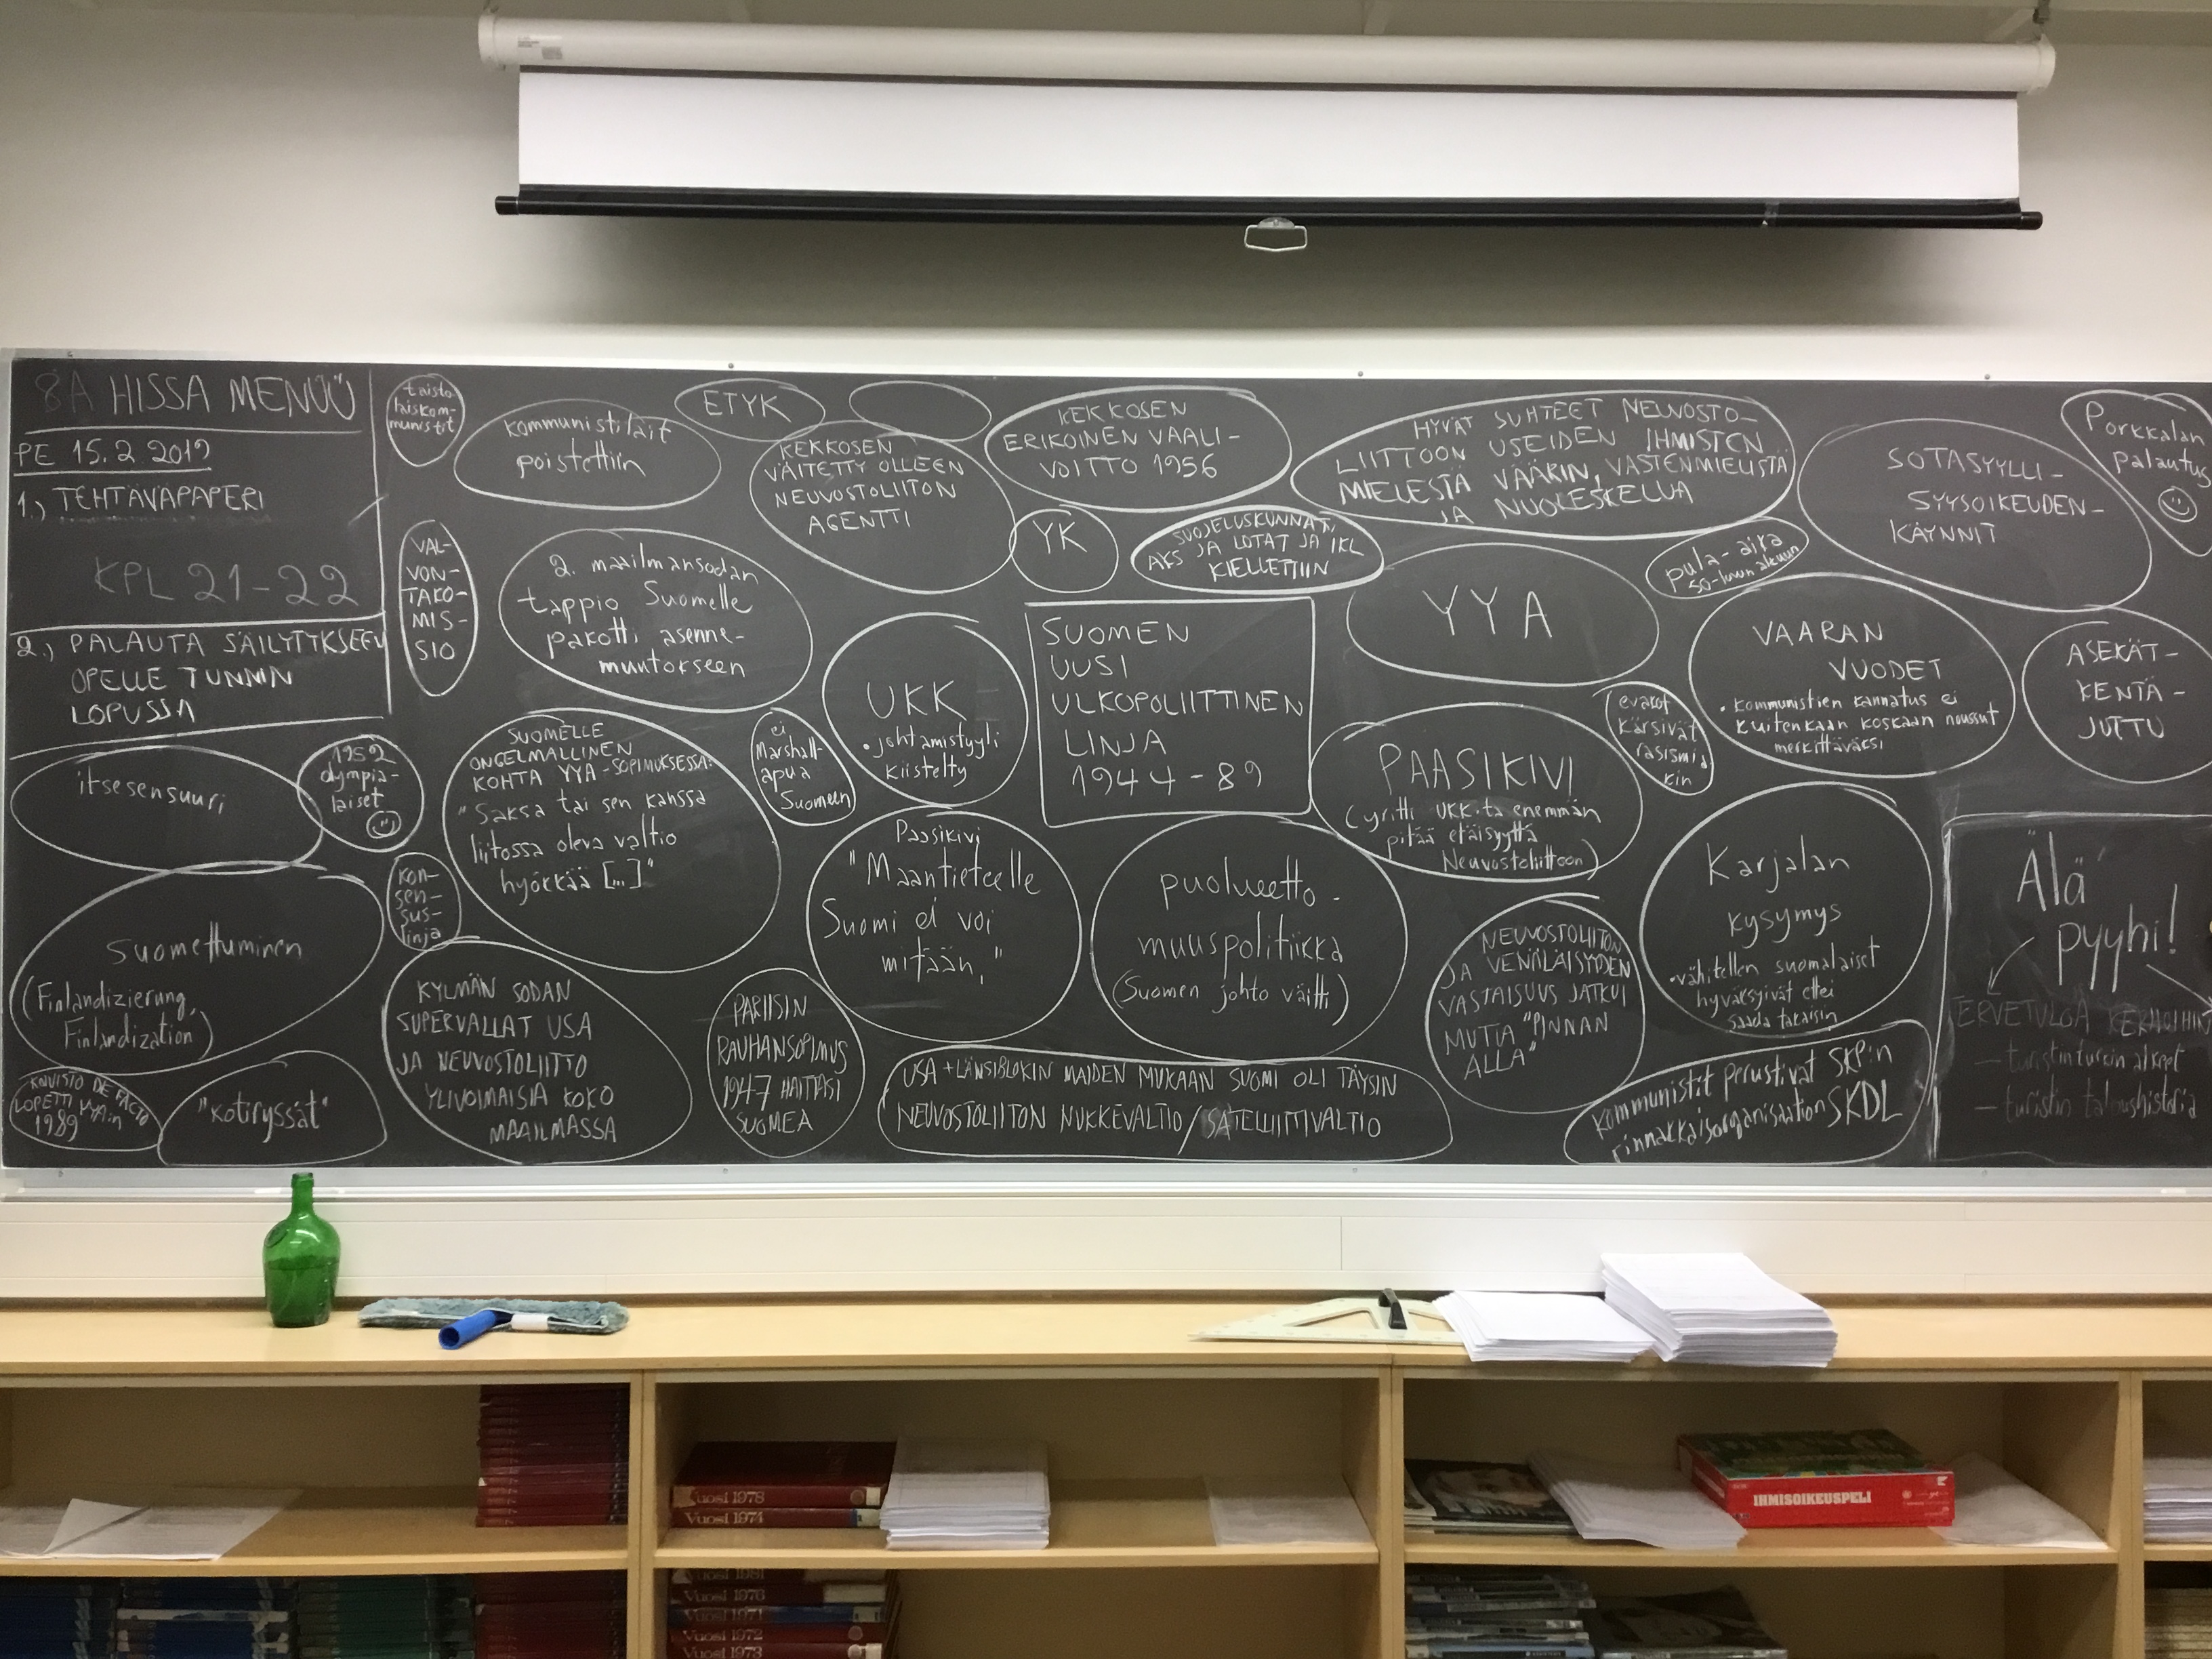 8A HISSA MENÜÜ
PE 15.2 2019
1.) TEHTÄVÄPAPERI
KPL 21-22
2.) PALAUTA SÄILYTYKSEEN
OPELLE TUNNIN
LOPUSSA
itsesensuuri
1952
olympia-
laiset
suomettuminen
(Finlandizierung,
Finlandization)
KOIVISTO DE FACTO
LOPETTI YYA:n
1989
"kotiryssät"
taisto-
laiskom-
munistit
VAL-
VON-
TAKO-
MIS-
SIO
kon-
sen-
sus-
linja
kommunistilait
poistettiin
ETYK
KEKKOSEN
VÄITETTY OLLEEN
NEUVOSTOLIITON
AGENTTI
KEKKOSEN
ERIKOINEN VAALI-
VOITTO 1956
YK
SUOJELUSKUNNAT,
AKS JA LOTAT JA IKL
KIELLETTIIN
HYVÄT SUHTEET NEUVOSTO-
LIITTOON USEIDEN IHMISTEN
MIELESTÄ VÄÄRIN, VASTENMIELISTÄ
JA NUOLESKELUA
SOTASYYLLI-
SYYSOIKEUDEN-
KÄYNNIT
Porkkalan
palautus
2. maailmansodan
tappio Suomelle
pakotti asenne-
muutokseen
UKK
• johtamistyyli
kiistelty
SUOMEN
UUSI
ULKOPOLIITTINEN
LINJA
1944-89
YYA
pula-aika
50-luvun alkuun
VAARAN
VUODET
• kommunistien kannatus ei
kuitenkaan koskaan noussut
merkittäväksi
ASEKÄT-
KENTÄ-
JUTTU
SUOMELLE
ONGELMALLINEN
KOHTA YYA-SOPIMUKSESSA:
"Saksa tai sen kanssa
liitossa oleva valtio
hyökkää [...]"
ei
Marshall-
apua
Suomeen
PAASIKIVI
(yritti UKK:ta enemmän
pitää etäisyyttä
Neuvostoliittoon)
evakot
kärsivät
rasismia-
kin
Paasikivi
"Maantieteelle
Suomi ei voi
mitään."
puolueetto-
muuspolitiikka
(Suomen johto väitti)
Karjalan
kysymys
• vähitellen suomalaiset
hyväksyivät ettei
saada takaisin
NEUVOSTOLIITON
JA VENÄLÄISYYDEN
VASTAISUUS JATKUI
MUTTA "PINNAN
ALLA"
KYLMÄN SODAN
SUPERVALLAT USA
JA NEUVOSTOLIITTO
YLIVOIMAISIA KOKO
MAAILMASSA
PARIISIN
RAUHANSOPIMUS
1947 HAITTASI
SUOMEA
USA + LÄNSIBLOKIN MAIDEN MUKAAN SUOMI OLI TÄYSIN
NEUVOSTOLIITON NUKKEVALTIO/SATELLIITTIVALTIO
kommunistit perustivat SKP:n
rinnakkaisorganisaation SKDL
Älä
pyyhi!
TERVETULOA KERHOIHIN
— turistinturvin alkeet
— turistin taloushistoria
Vuosi 1978
Vuosi 1974
Vuosi 1981
Vuosi 1976
Vuosi 1971
Vuosi 1972
Vuosi 1973
IHMISOIKEUSPELI